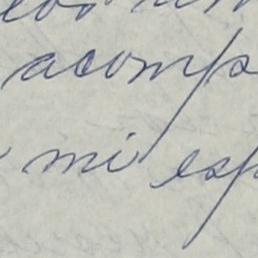 acomp
mi esp